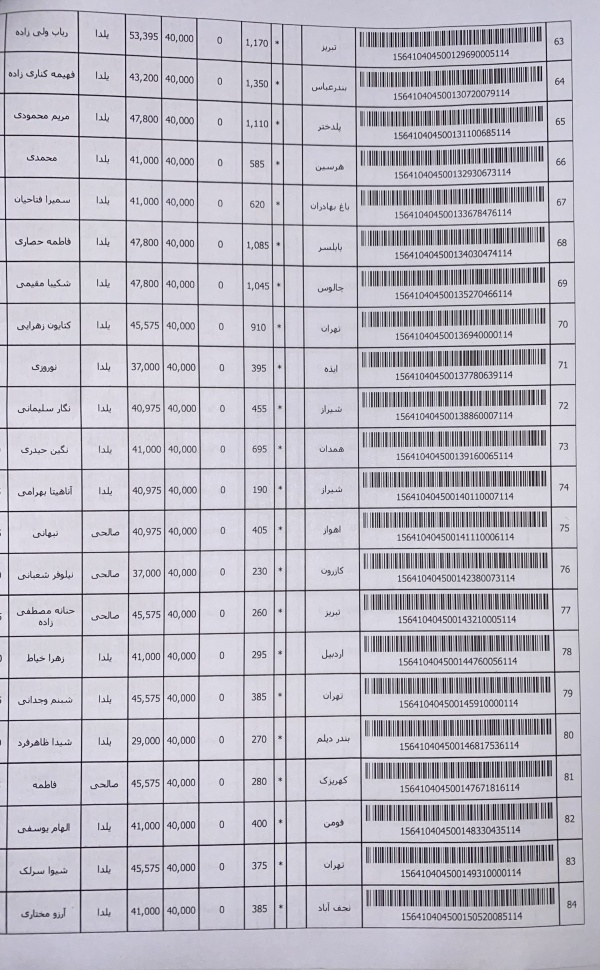 63 156410404500129690005114 تبریز * 1,170 0 40,000 53,395 یلدا رباب ولی زاده
64 156410404500130720079114 بندرعباس * 1,350 0 40,000 43,200 یلدا فهیمه کناری زاده
65 156410404500131100685114 پلدختر * 1,110 0 40,000 47,800 یلدا مریم محمودی
66 156410404500132930673114 هرسین * 585 0 40,000 41,000 یلدا محمدی
67 156410404500133678476114 باغ بهادران * 620 0 40,000 41,000 یلدا سمیرا فتاحیان
68 156410404500134030474114 بابلسر * 1,085 0 40,000 47,800 یلدا فاطمه حصاری
69 156410404500135270466114 چالوس * 1,045 0 40,000 47,800 یلدا شکیبا مقیمی
70 156410404500136940000114 تهران * 910 0 40,000 45,575 یلدا کتایون زهرایی
71 156410404500137780639114 ایذه * 395 0 40,000 37,000 یلدا نوروزی
72 156410404500138860007114 شیراز * 455 0 40,000 40,975 یلدا نگار سلیمانی
73 156410404500139160065114 همدان * 695 0 40,000 41,000 یلدا نگین حیدری
74 156410404500140110007114 شیراز * 190 0 40,000 40,975 یلدا آناهیتا بهرامی
75 156410404500141110006114 اهواز * 405 0 40,000 40,975 صالحی نبهانی
76 156410404500142380073114 کازرون * 230 0 40,000 37,000 صالحی نیلوفر شعبانی
77 156410404500143210005114 تبریز * 260 0 40,000 45,575 صالحی حنانه مصطفی
زاده
78 156410404500144760056114 اردبیل * 295 0 40,000 41,000 یلدا زهرا خیاط
79 156410404500145910000114 تهران * 385 0 40,000 45,575 یلدا شبنم وجدانی
80 156410404500146817536114 بندر دیلم * 270 0 40,000 29,000 یلدا شیدا طاهرفرد
81 156410404500147671816114 کهریزک * 280 0 40,000 45,575 صالحی فاطمه
82 156410404500148330435114 فومن * 400 0 40,000 41,000 یلدا الهام یوسفی
83 156410404500149310000114 تهران * 375 0 40,000 45,575 یلدا شیوا سرلک
84 156410404500150520085114 نجف آباد * 385 0 40,000 41,000 یلدا آرزو مختاری